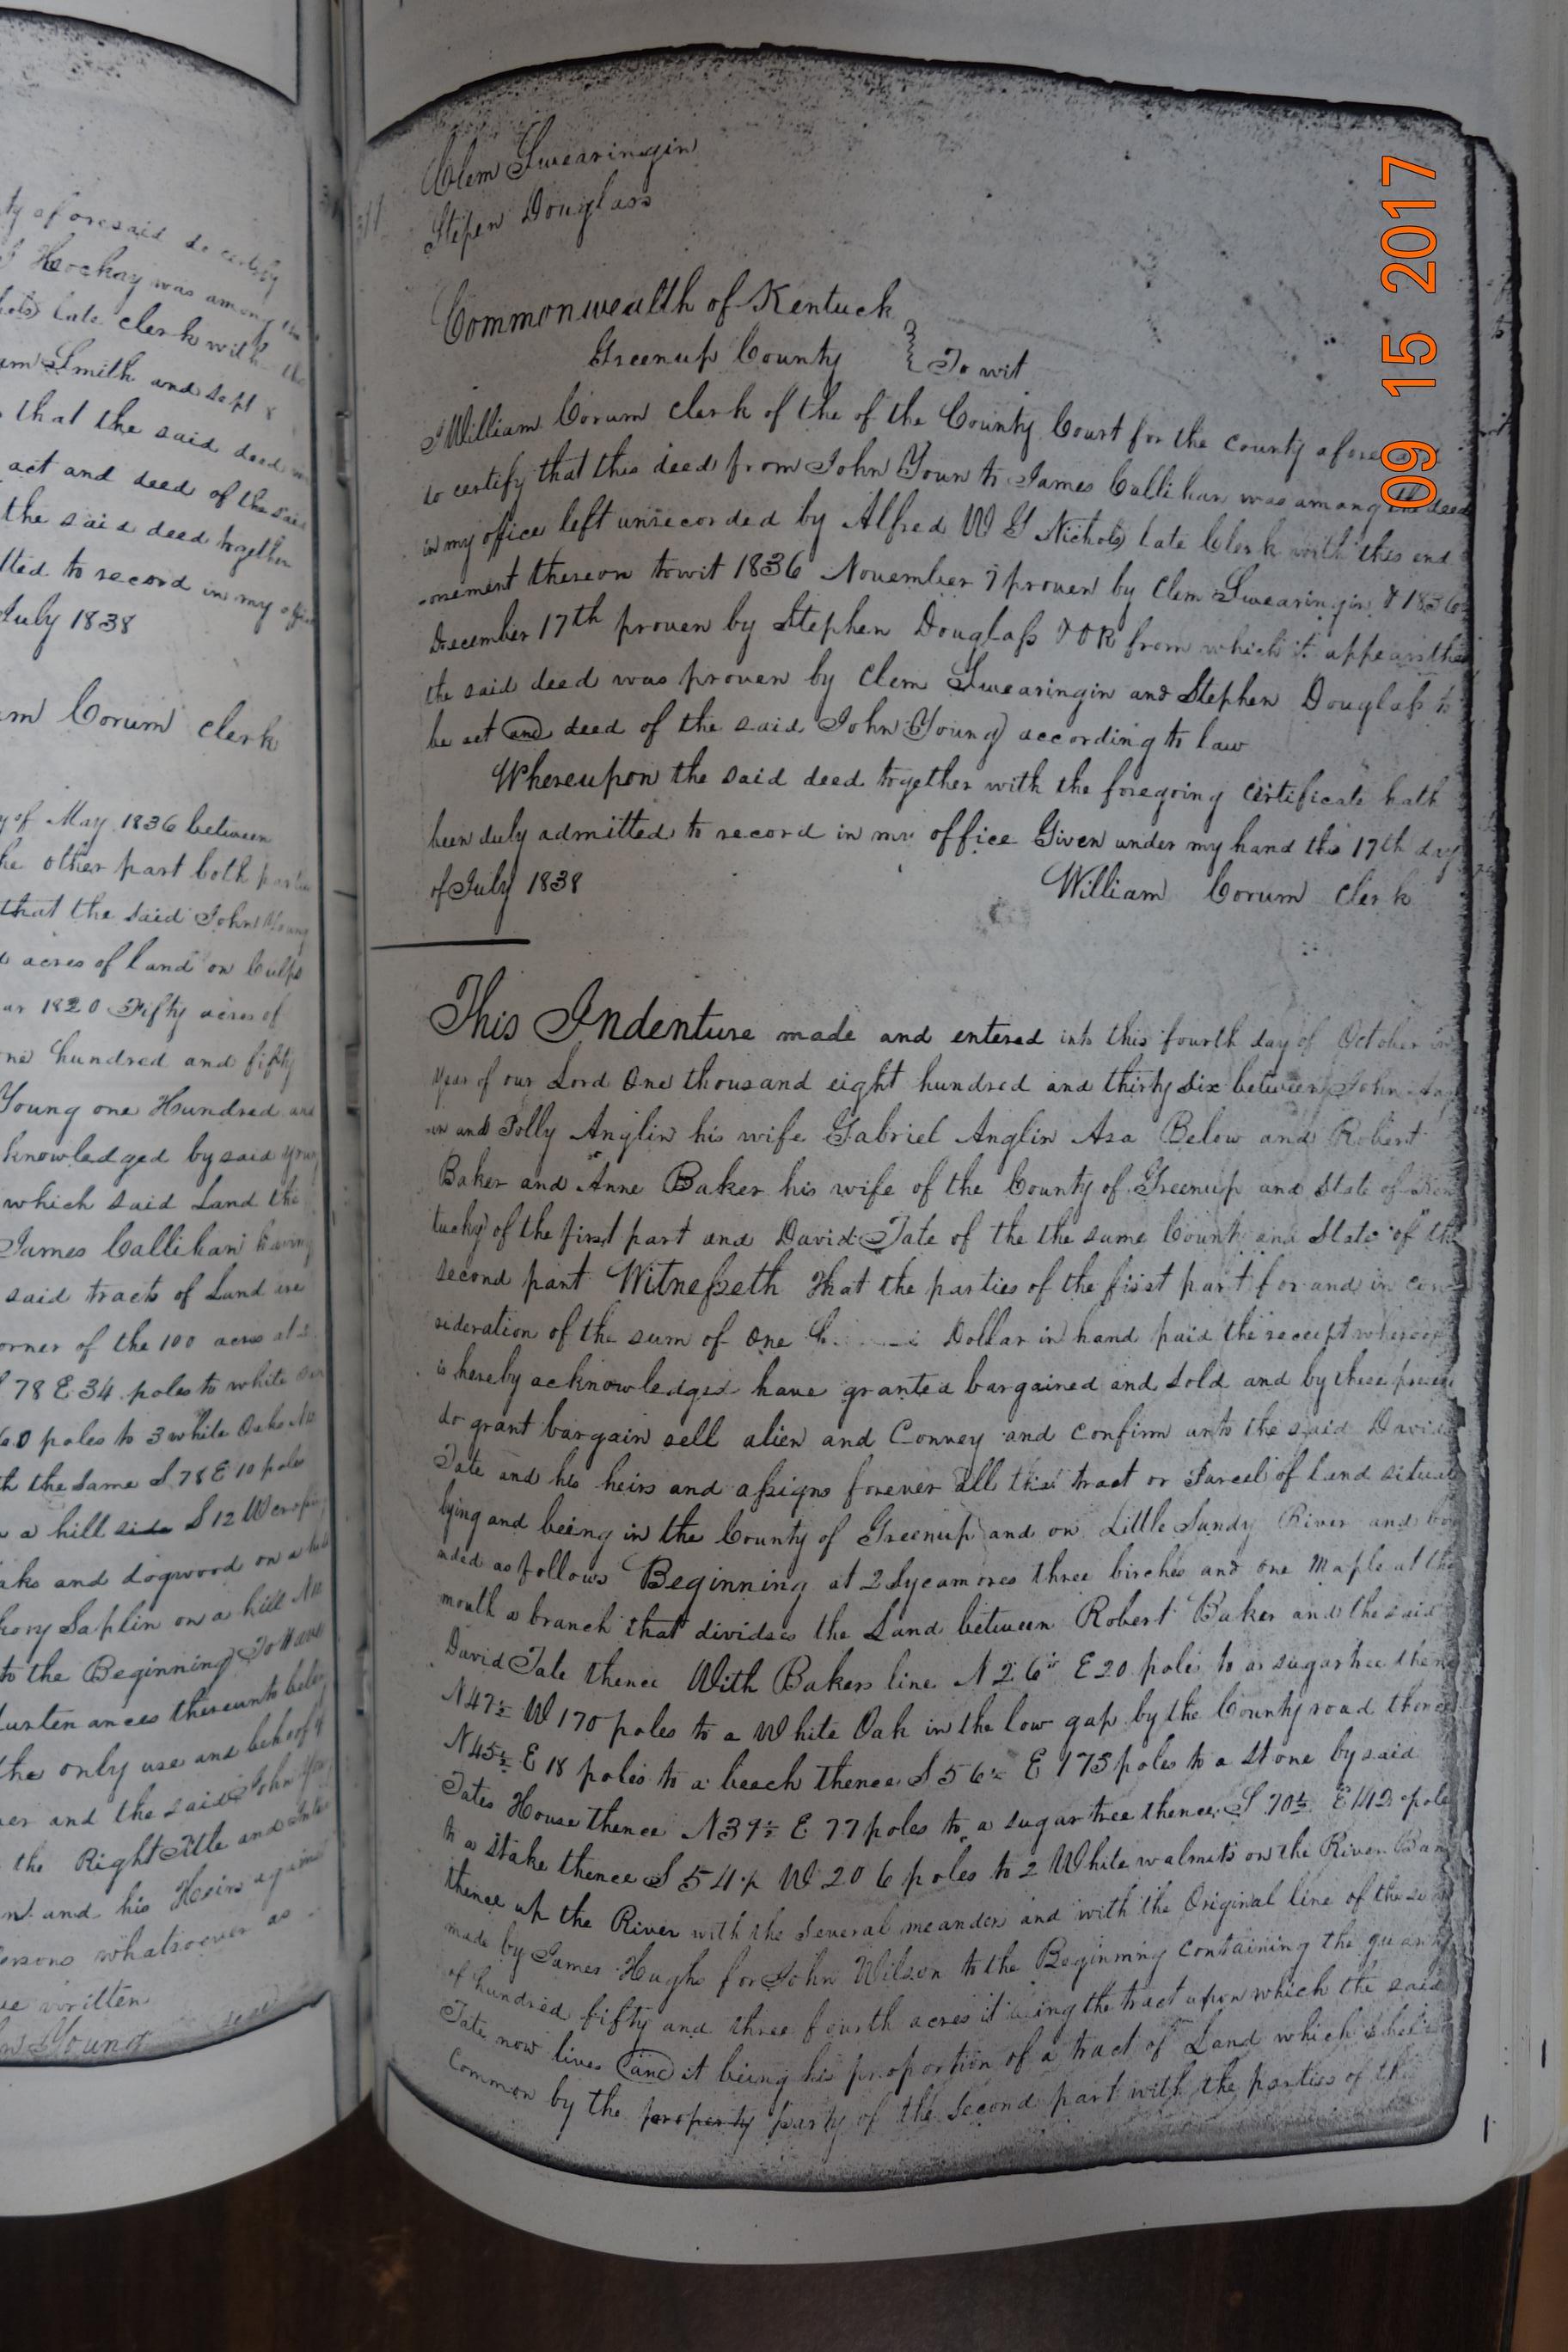 ty aforesaid do certify
Hockay was among the
late clerk with the
am Smith and sept 8
that the said deed
act and deed of the said
the said deed together
tted to record in my office
July 1838
m Corum clerk
y of May 1836 between
he other part both parties
that the said John Young
acres of land on Culps
ar 1820 Fifty acres of
ne hundred and fifty
Young one Hundred and
knowledged by said you
which said Land the
James Callihan having
said tracts of Land are
orner of the 100 acres
78 E 34 poles to white
60 poles to 3 white Oaks
th the same S 78 E 10 poles
a hill side S 12 W
aks and dogwood on a
kory Saplin on a hill
to the Beginning To Have
urtenances thereunto
the only use and behoof
er and the said John
the Right Title and
n and his Heirs again
ersons whatsoever
ve written
n Young
Clem Swearingin
Stepen Douglass
Commonwealth of Kentuck
Greenup County } To wit
I William Corum clerk of the of the County Court for the county afore
to certify that this deed from John Youn to James Callihan was among the deed
in my office left unrecorded by Alfred W G Nichols late Clerk with this end
-orsement thereon towit 1836 November 7 proven by Clem Swearingin & 1836
December 17th proven by Stephen Douglass & OR from which it appears tha
the said deed was proven by Clem Swearingin and Stephen Douglass to
be act and deed of the said John Young according to law
Whereupon the said deed together with the foregoing certificate hath
been duly admitted to record in my office Given under my hand this 17th day
of July 1838 William Corum Clerk
This Indenture made and entered into this fourth day of October in
year of our Lord One thousand eight hundred and thirty six between John Ang
-in and Polly Anglin his wife Gabriel Anglin Asa Below and Robert
Baker and Anne Baker his wife of the County of Greenup and State of Ken
tucky of the first part and David Tate of the the same County and State of the
second part Witnesseth That the parties of the first part for and in con
sideration of the sum of One Dollar in hand paid the receipt whereof
is hereby acknowledged have granted bargained and sold and by these presen
do grant bargain sell alien and Convey and confirm unto the said David
Tate and his heirs and assigns forever all that tract or Parcel of land situat
lying and being in the County of Greenup and on Little Sandy River and bou
nded as follows Beginning at 2 Sycamores three birches and one Maple at the
mouth a branch that dividses the Land between Robert Baker and the said
David Tate thence With Bakers line N 26 E 20 poles to a sugartree then
N47½ W 170 poles to a White Oak in the low gap by the County road thence
N45½ E 18 poles to a beech thence S 56½ E 175 poles to a Stone by said
Tates House thence N37½ E 77 poles to a sugartree thence S 70½ E 142 pole
to a stake thence S 54½ W 206 poles to 2 White walnuts on the River Ban
thence up the River with the several meanders and with the Original line of the
made by James Hughs for John Wilson to the Beginning containing the quanty
of hundred fifty and three fourth acres it being the tract upon which the said
Tate now lives and it being his proportion of a tract of Land which is held
Common by the property party of the second part with the parties of the
09 15 2017